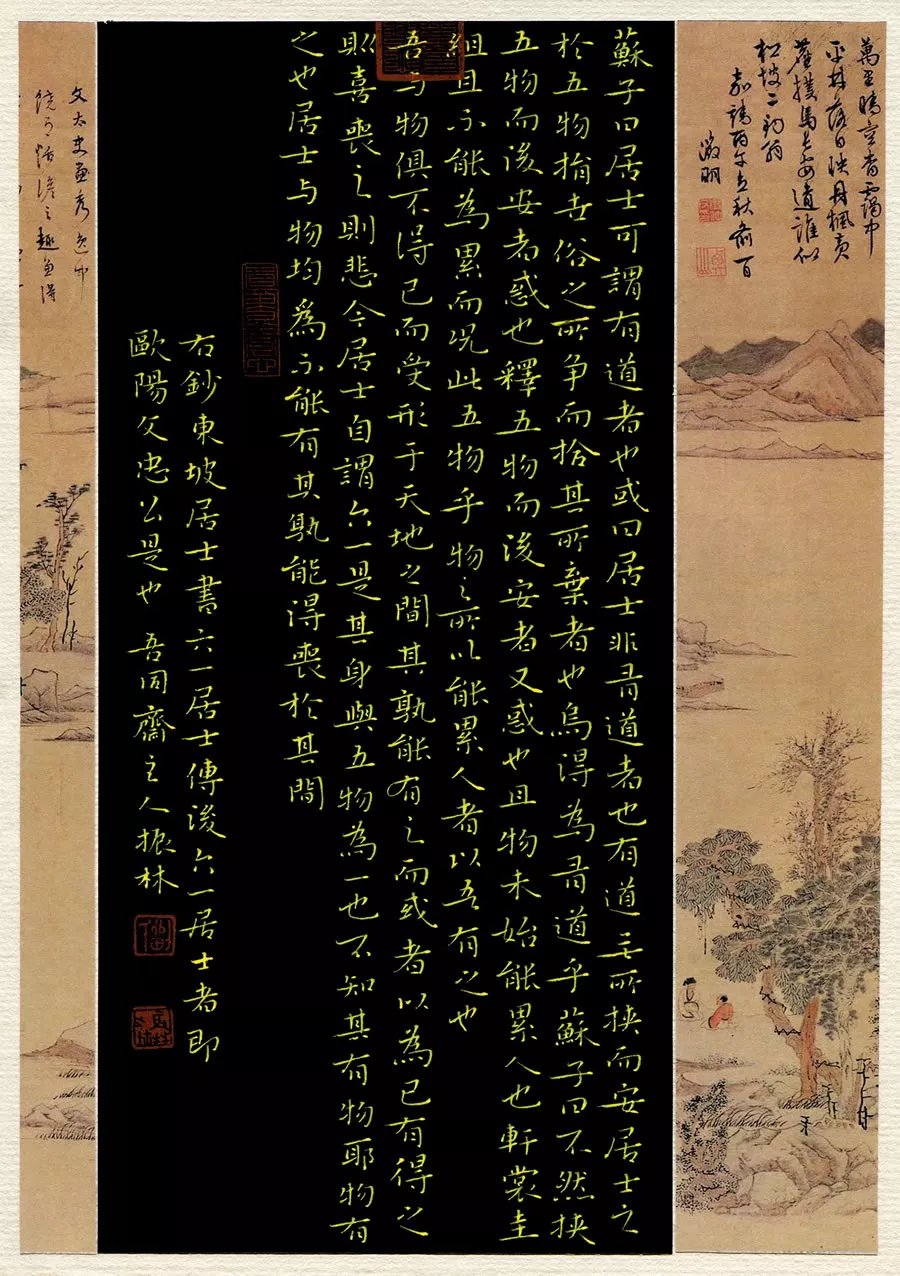 萬里晴空杳靄中
平林落日映丹楓黃
塵撲馬長安道誰似
松坡二釣翁
嘉靖丙午立秋前一日
徵明
蘇子曰居士可謂有道者也或曰居士非有道者也有道无所挾而安居士之
於五物捐世俗之所争而捨其所棄者也烏得為有道乎蘇子曰不然挾
五物而後安者惑也釋五物而後安者又惑也且物未始能累人也軒裳圭
組且不能為累而况此五物乎物之所以能累人者以吾有之也
吾与物俱不得已而受形于天地之間其孰能有之而或者以為已有得之
則喜喪之則悲今居士自謂六一是其身與五物為一也不知其有物耶物有
之也居士与物均為不能有其孰能得喪於其間
右鈔東坡居士書六一居士傳後六一居士者即
歐陽文忠公是也 吾同齋主人振林
文太史畫秀逸中
饒有恬澹之趣